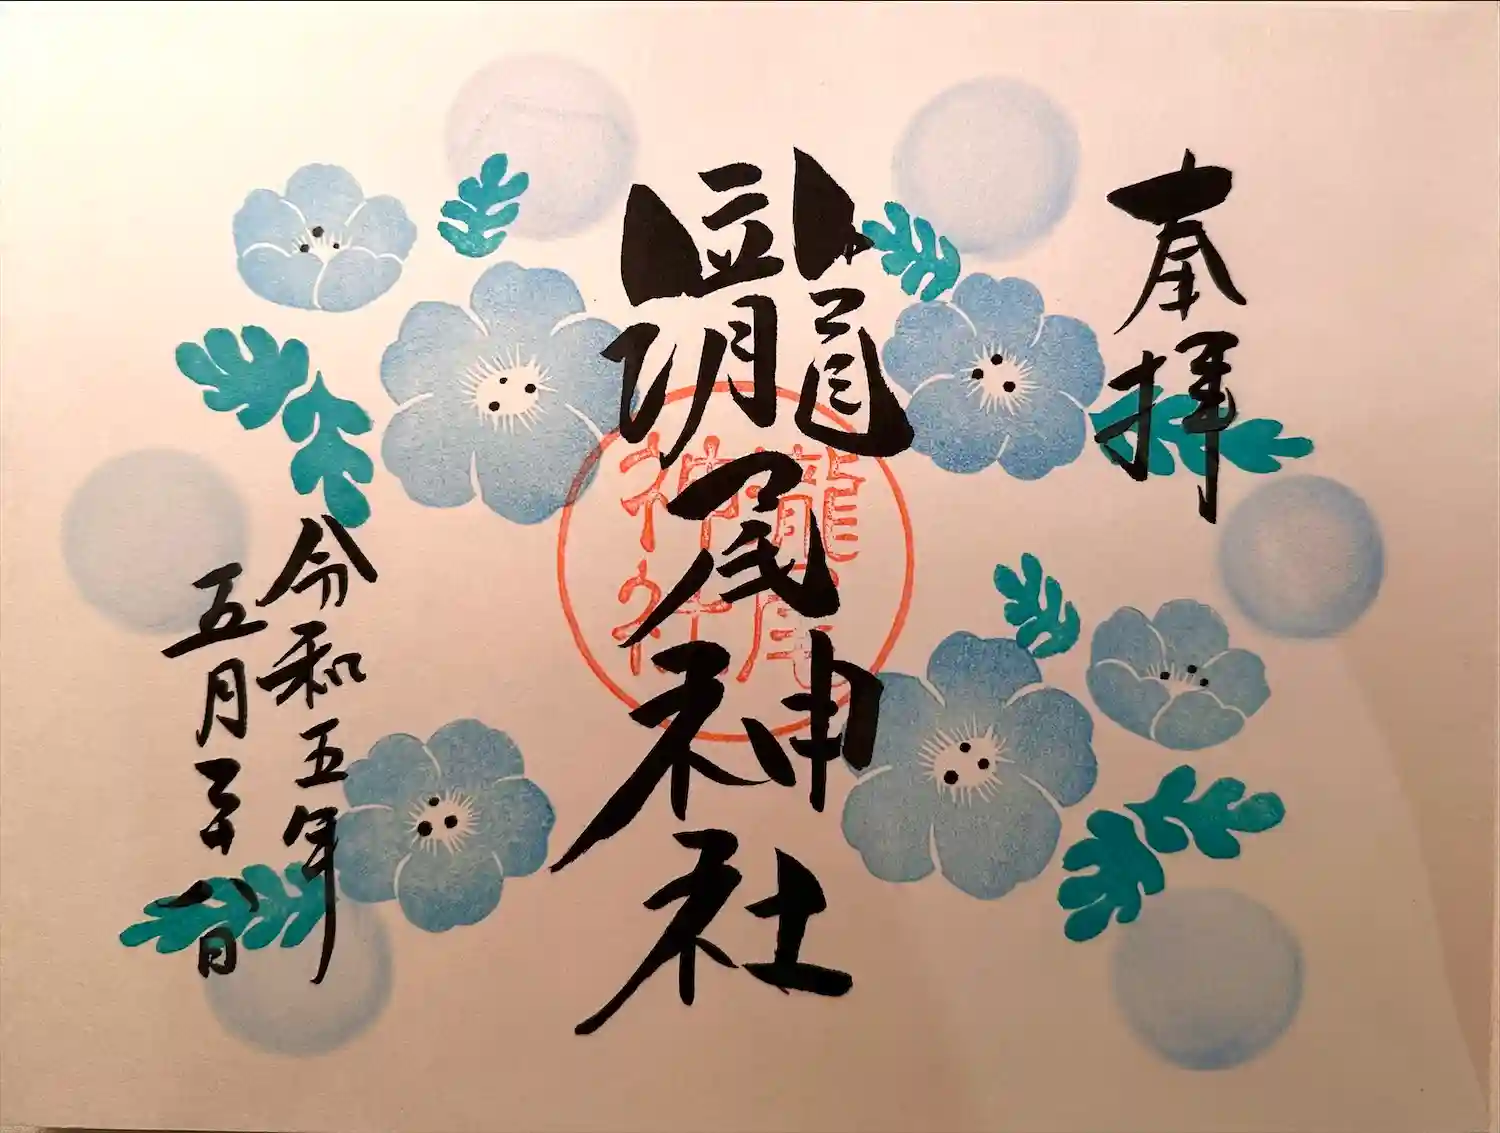 奉拝
龍尾神社
龍尾
神社
令和五年
五月二十八日